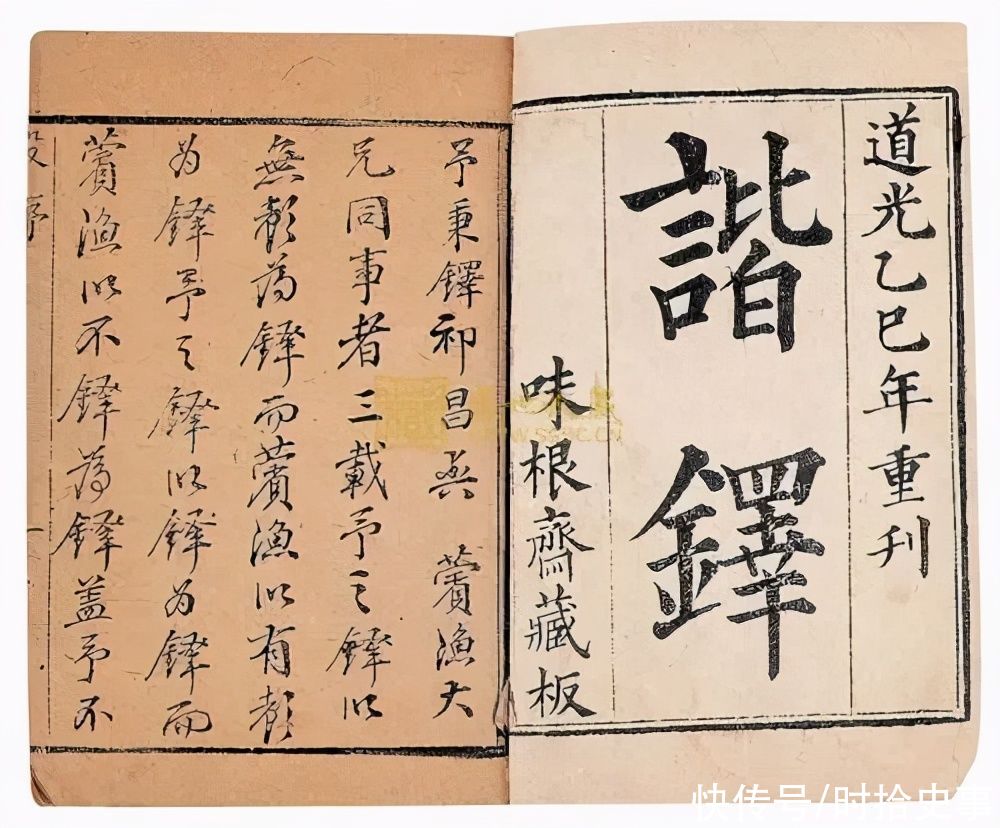 道光乙巳年重刊
諧鐸
味根齋藏板
予秉鐸祁昌與 薲漁大
兄同事者三載予之鐸以
無聲為鐸而薲漁以有聲
为鐸予之鐸以鐸为鐸而
薲漁以不鐸為鐸蓋予不
序 一
快传号/时拾史事